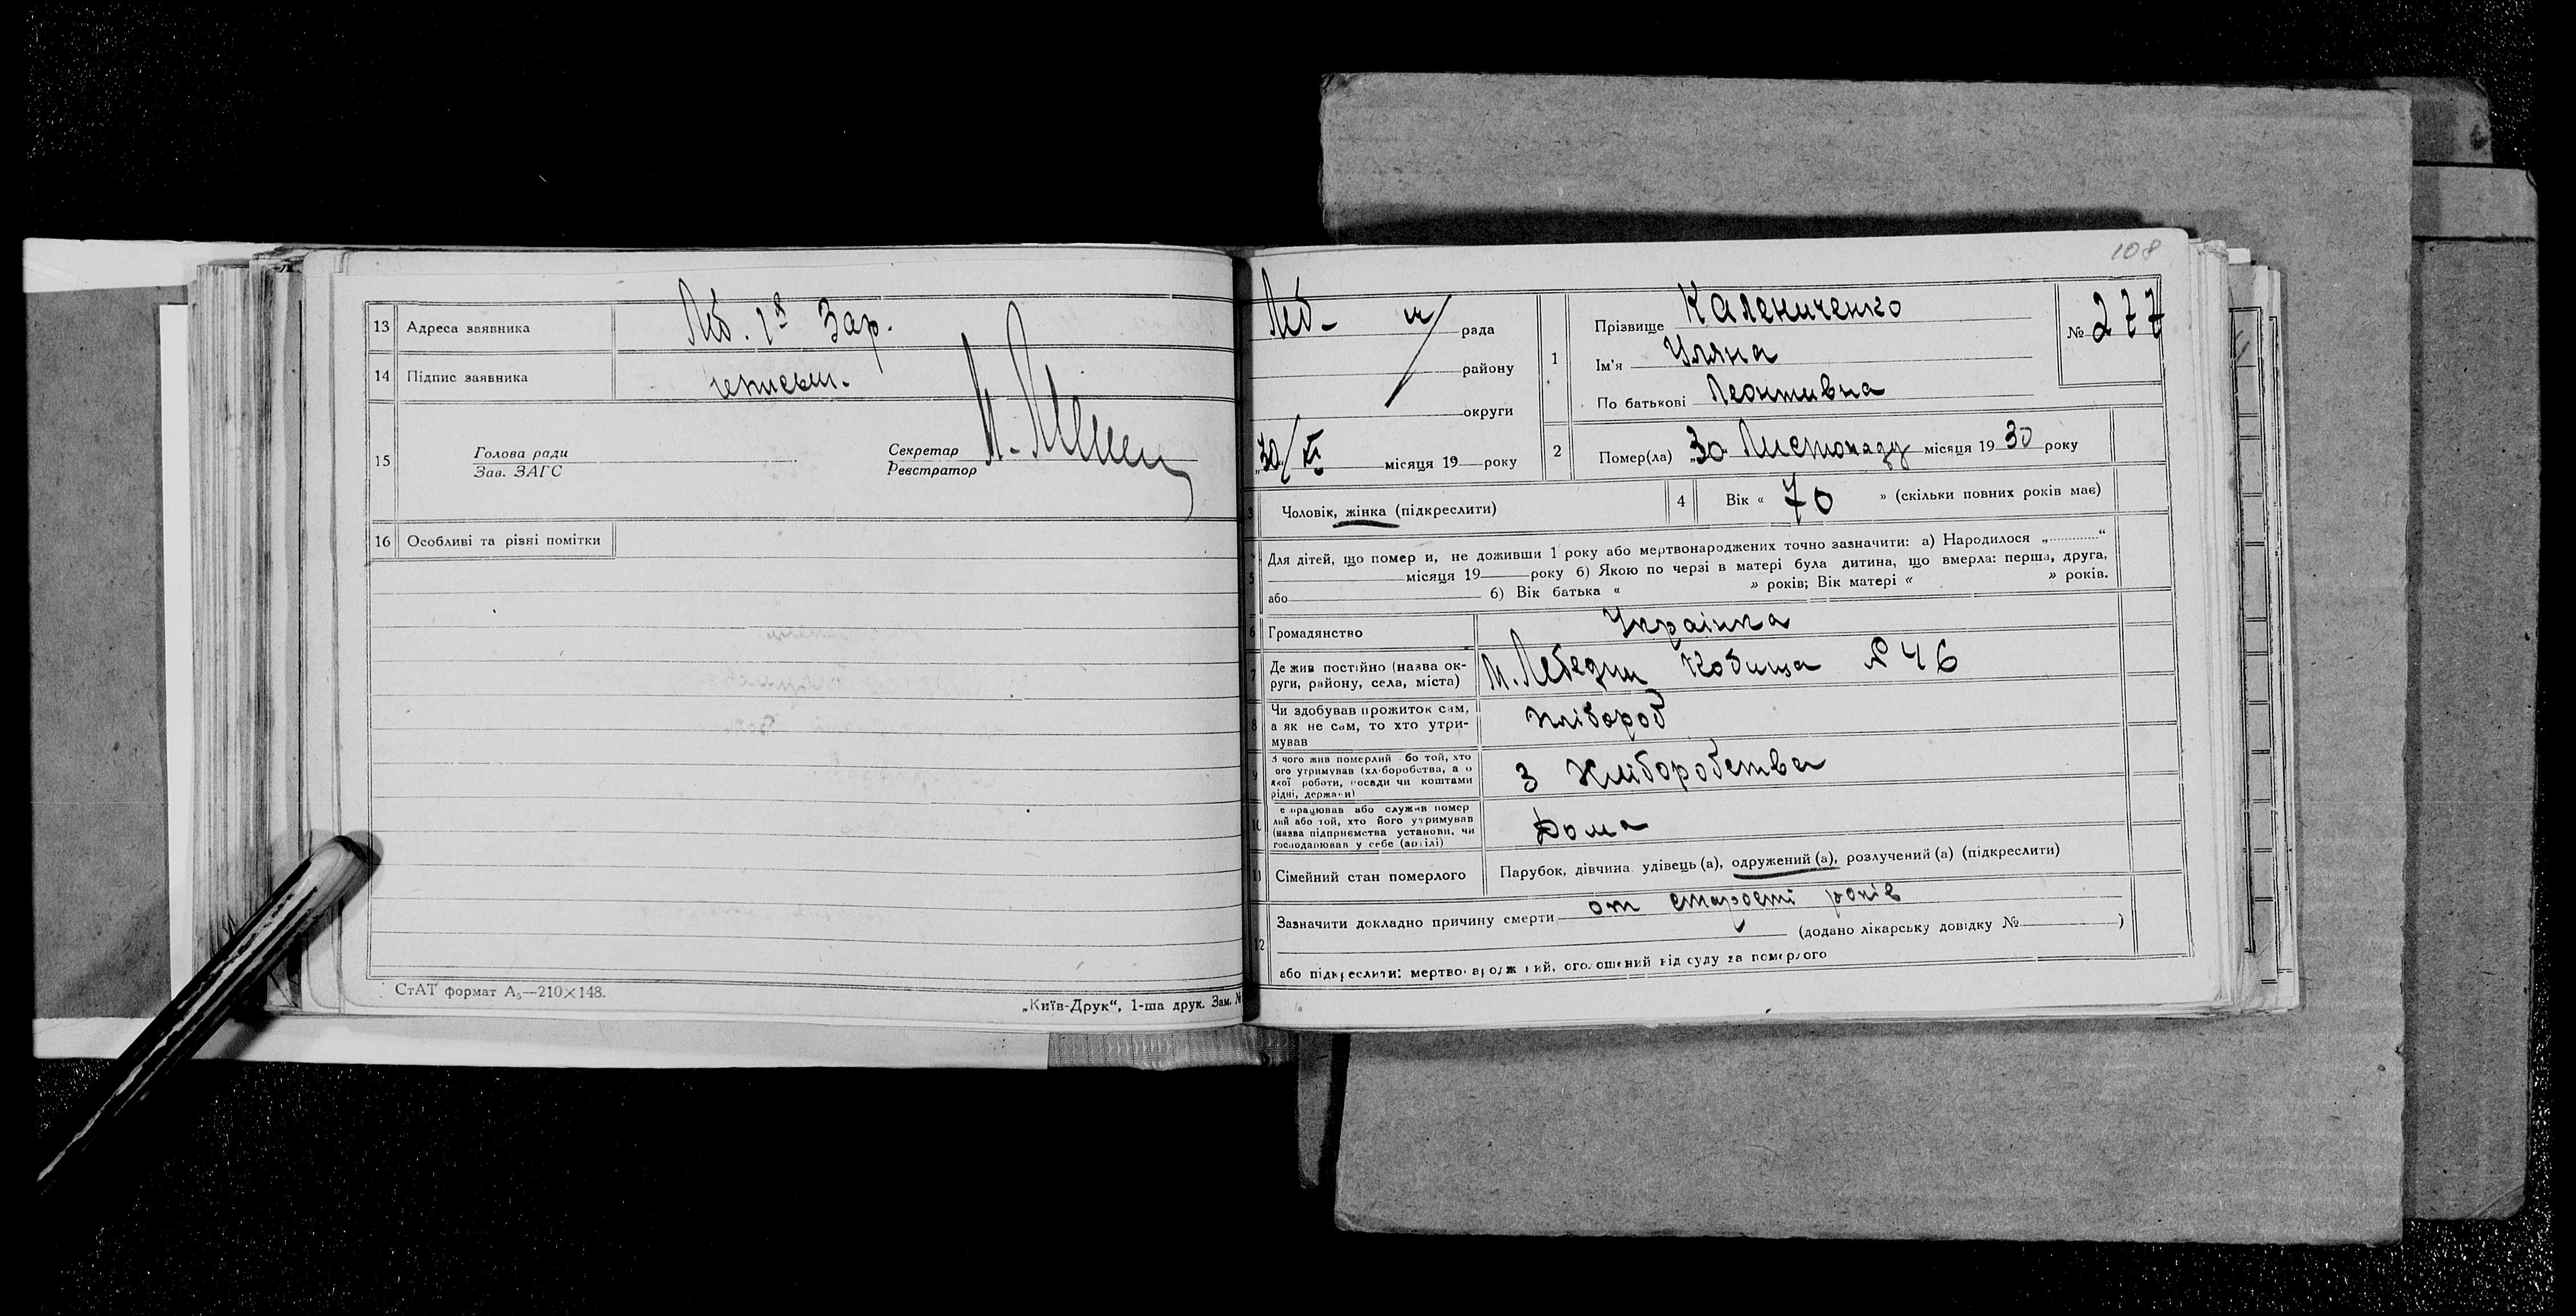 13 Адреса заявника Леб. 18 Зар.
14 Підпис заявника
15 Голова ради
Зав. ЗАГС
Секретар
Реєстратор
16 Особливі та різні помітки
СтАТ формат А₅—210×148.
„Київ-Друк“, 1-ша друк. Зам. №
108
Леб- м/ рада
району
округи
30/XI місяця 19 року
1 Прізвище Калениченко
Ім'я Уляна
По батькові Леонтивна
№ 277
2 Помер(ла) „30 Листопаду місяця 1930 року
3 Чоловік, жінка (підкреслити)
4 Вік « 70 » (скільки повних років має)
5 Для дітей, що помер и, не доживши 1 року або мертвонароджених точно зазначити: а) Народилося „............“
місяця 19 року б) Якою по черзі в матері була дитина, що вмерла: перша, друга,
або б) Вік батька « » років; Вік матері « » років.
6 Громадянство Українка
7 Де жив постійно (назва ок-
руги, району, села, міста) М. Лебедин Кобища № 46
8 Чи здобував прожиток сам,
а як не сам, то хто утри-
мував хлібороб
9 З чого жив померлий бо той, хто
ого утримував (хл боробства, а о
якої роботи, посади чи коштами
рідні, держа и) З Хліборобства
10 е працював або служив помер
лий або той, хто його утримував
(назва підприємства установи, чи
господарював у себе (артілі) Дома
11 Сімейний стан померлого Парубок, дівчина удівець (а), одружений (а), розлучений (а) (підкреслити)
12 Зазначити докладно причину смерти от старости років
(додано лікарську довідку № )
або підкреслити: мертво ародж ий, оголошений від суду за померлого